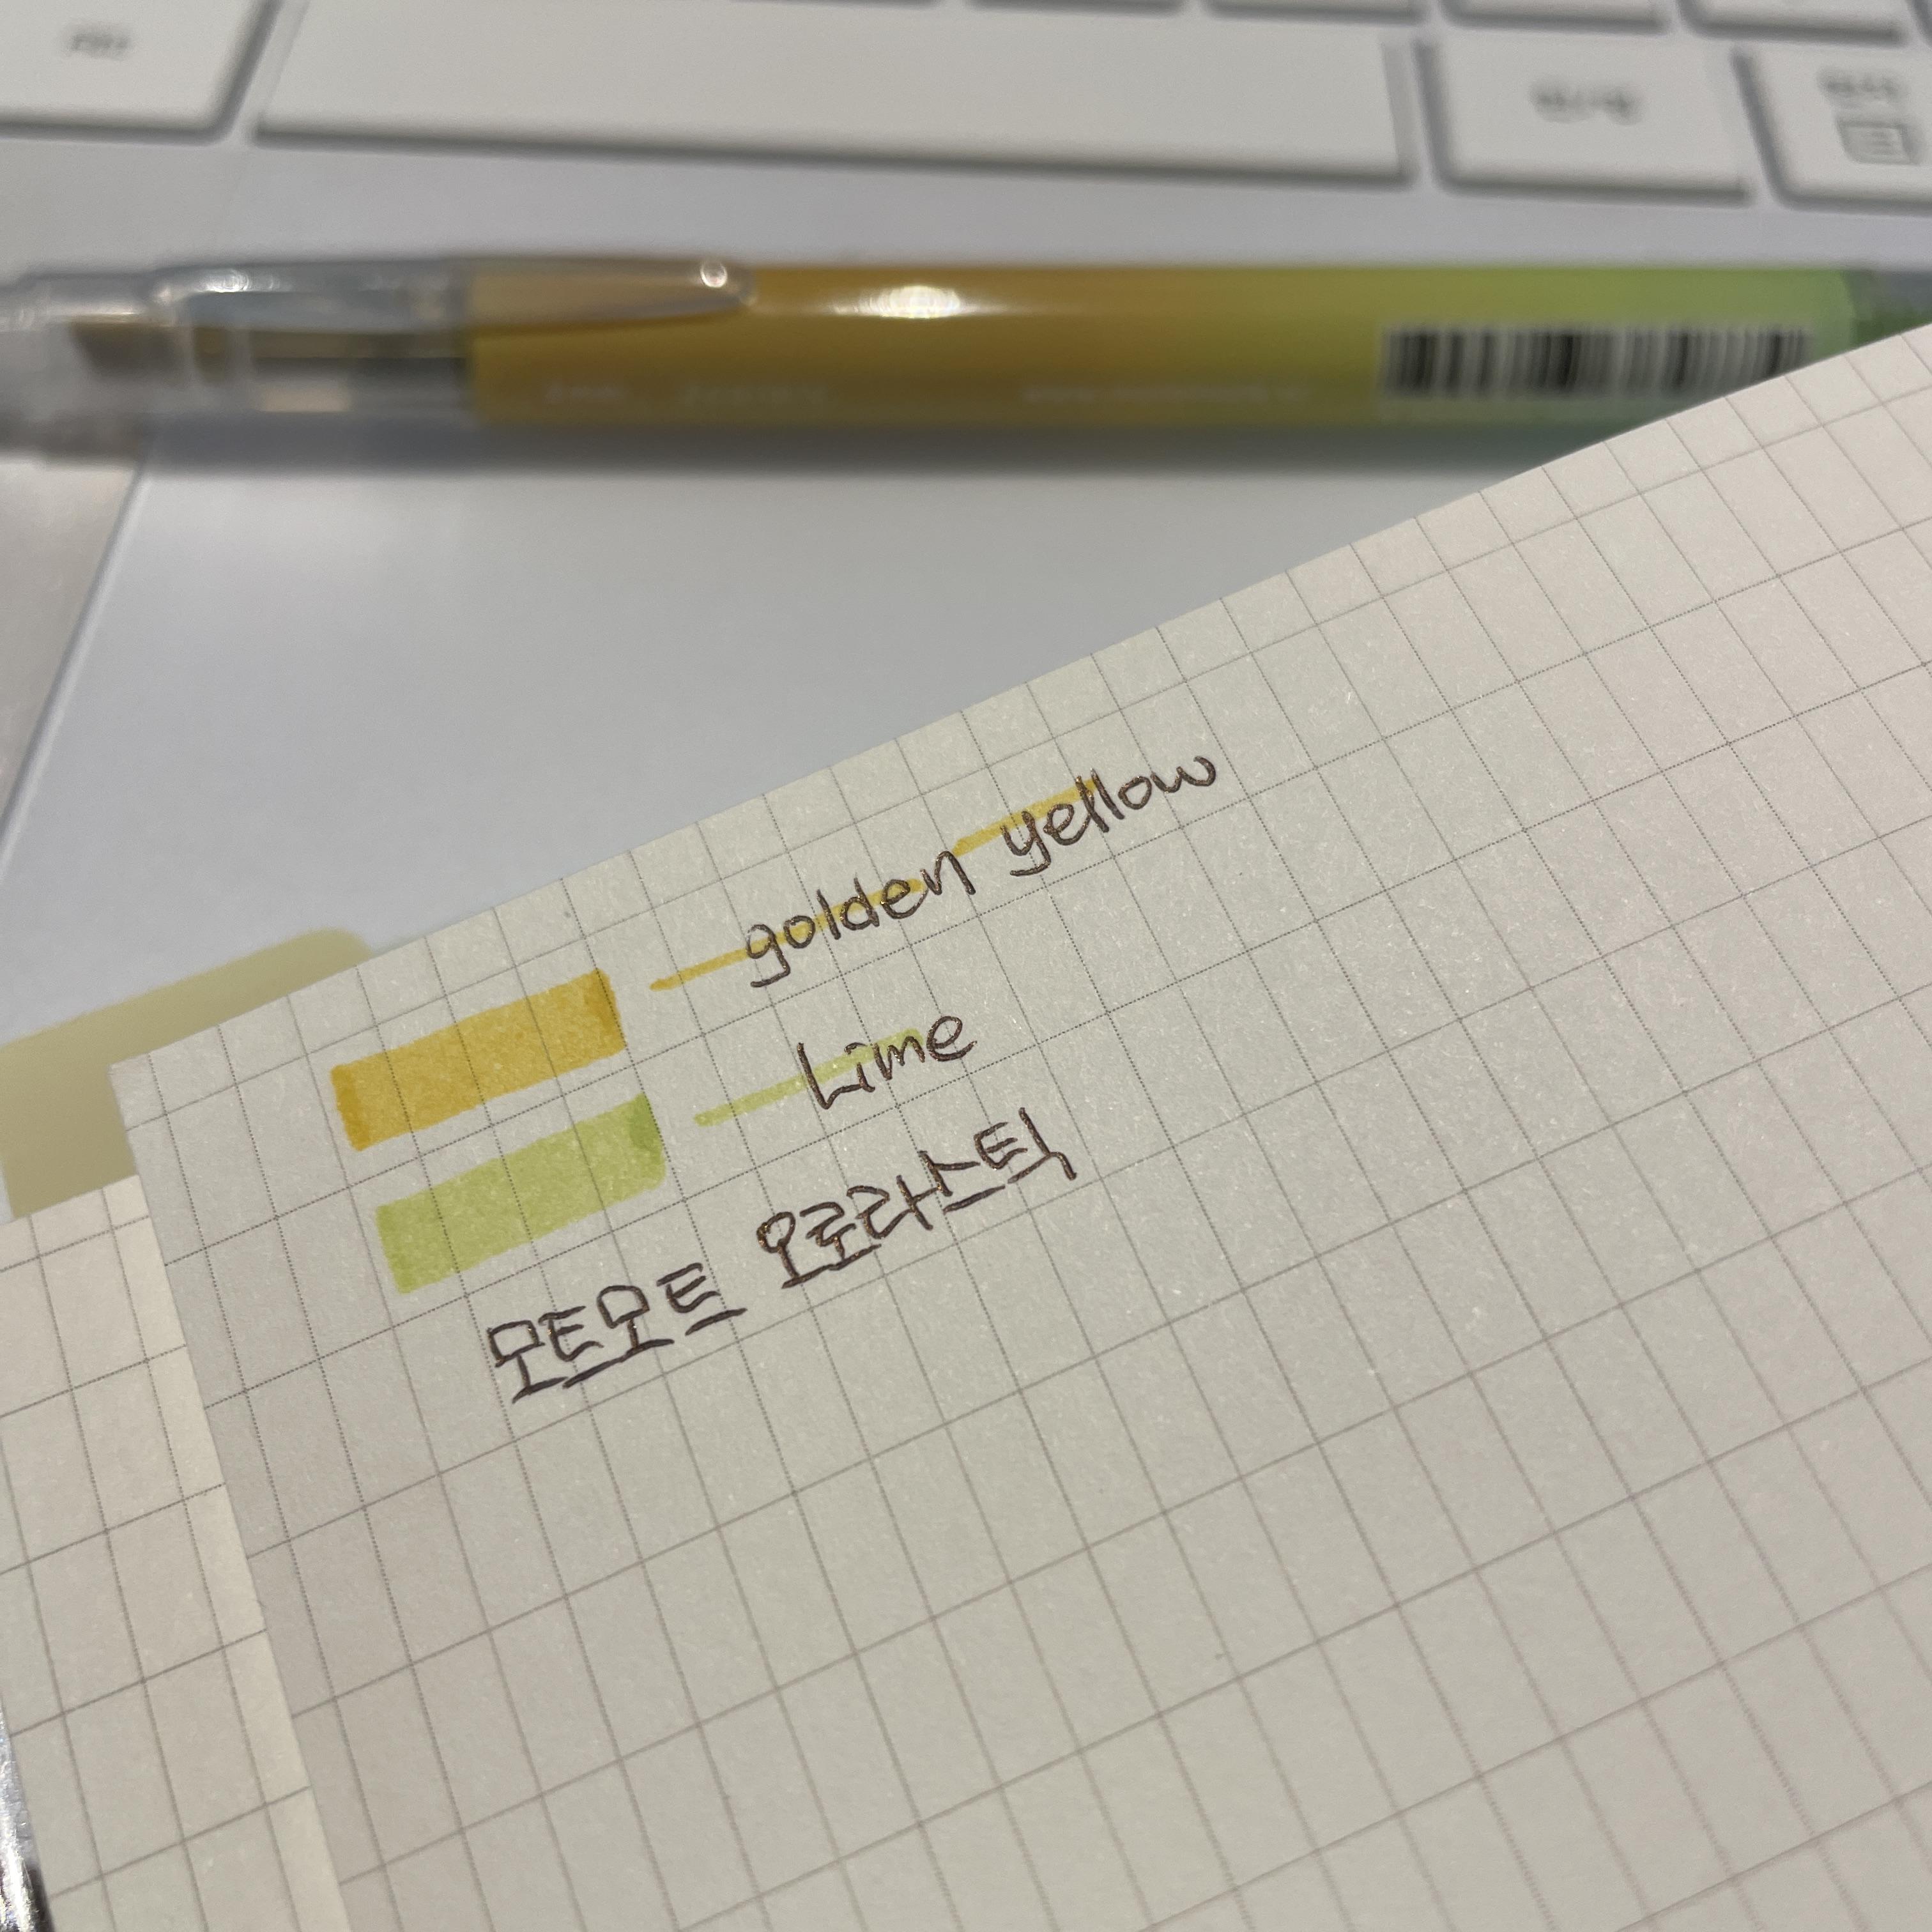 golden yellow
Lime
모트모트 오로라스틱